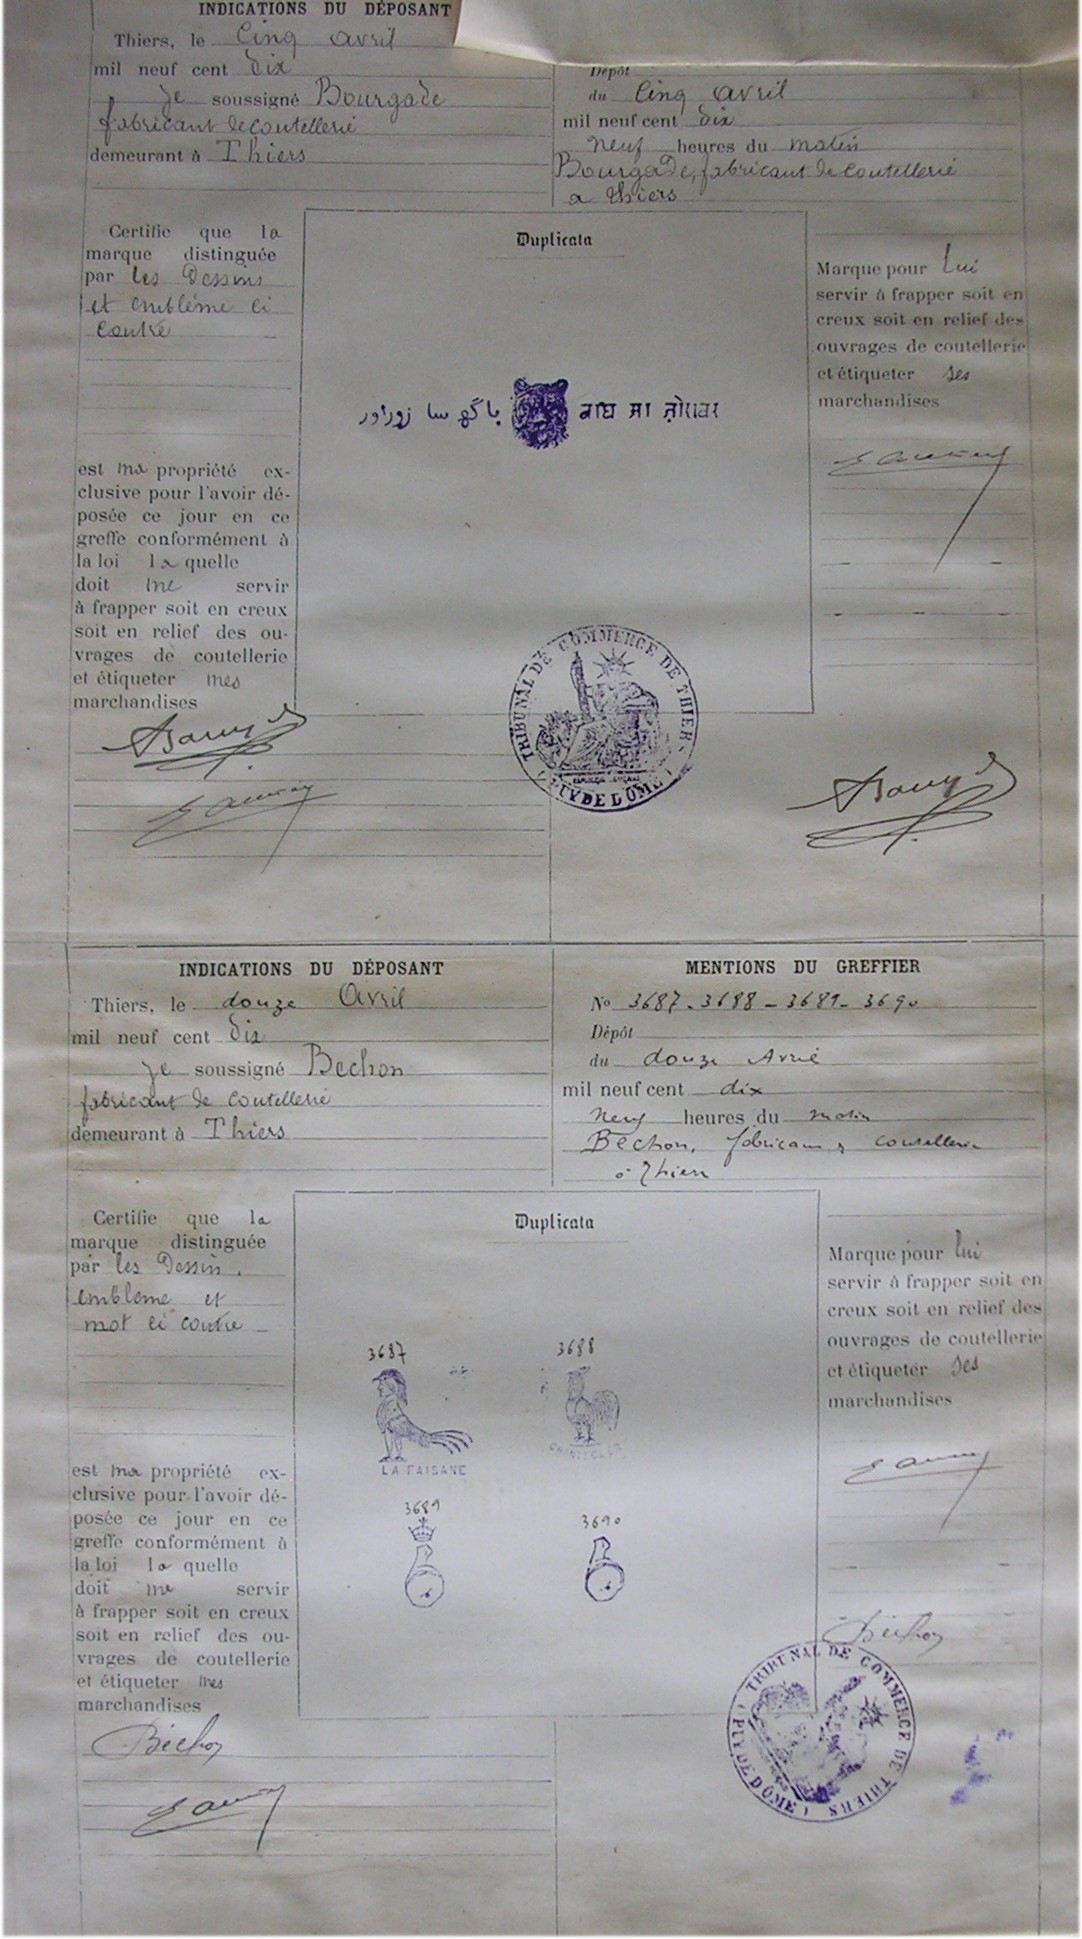 INDICATIONS DU DÉPOSANT
Thiers, le Cinq avril
mil neuf cent dix
Je soussigné Bourgade
fabricant de coutellerie
demeurant à Thiers
Dépôt
du Cinq avril
mil neuf cent dix
neuf heures du matin
Bourgade, fabricant de coutellerie
a thiers
Certifie que la
marque distinguée
par les Dessins
et emblème ci
contre
est ma propriété ex-
clusive pour l'avoir dé-
posée ce jour en ce
greffe conformément à
la loi la quelle
doit me servir
à frapper soit en creux
soit en relief des ou-
vrages de coutellerie
et étiqueter mes
marchandises
Duplicata
باگھ سا زوراور
बाघ सा ज़ोरावर
TRIBUNAL DE COMMERCE DE THIERS
(PUY DE DÔME)
Marque pour lui
servir à frapper soit en
creux soit en relief des
ouvrages de coutellerie
et étiqueter ses
marchandises
INDICATIONS DU DÉPOSANT
Thiers, le douze Avril
mil neuf cent dix
Je soussigné Bechon
fabricant de coutellerie
demeurant à Thiers
MENTIONS DU GREFFIER
No 3687-3688-3689-3690
Dépôt
du douze Avril
mil neuf cent dix
Neuf heures du matin
Bechon, fabricant coutellerie
à Thiers
Certifie que la
marque distinguée
par les Dessin,
emblème et
mot ci contre
est ma propriété ex-
clusive pour l'avoir dé-
posée ce jour en ce
greffe conformément à
la loi la quelle
doit me servir
à frapper soit en creux
soit en relief des ou-
vrages de coutellerie
et étiqueter mes
marchandises
Béchon
Duplicata
3687
LA FAISANE
3688
CHANTECLER
3689
3690
Marque pour lui
servir à frapper soit en
creux soit en relief des
ouvrages de coutellerie
et étiqueter ses
marchandises
Béchon
TRIBUNAL DE COMMERCE DE THIERS
(PUY DE DÔME)